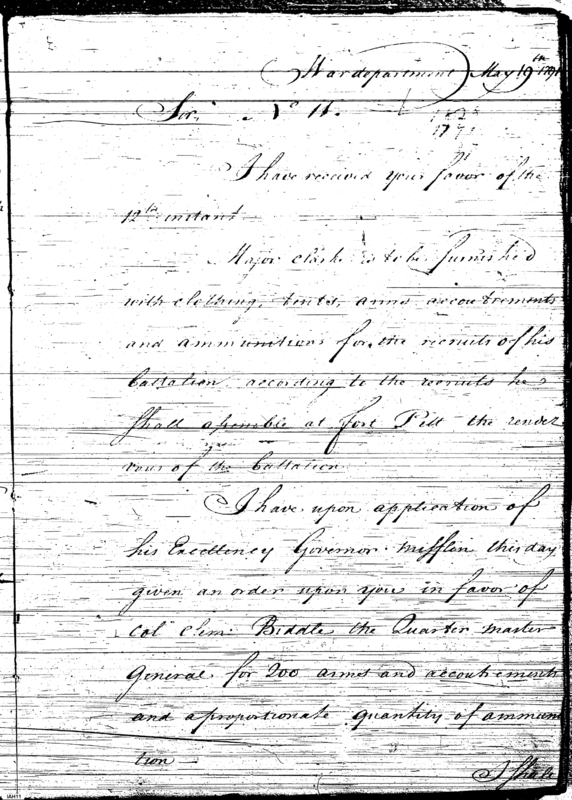 War department May 19th 1791
Sir, No 11.
I have received your favor of the
12th instant
Major Clark is to be furnished
with clothing, tents, arms accoutrements
and ammunition for the recruits of his
battalion according to the recruits he
shall assemble at fort Pitt the rendez
vous of the battalion
I have upon application of
his Excellency Governor Mifflin this day
given an order upon you in favor of
Col Clem: Biddle the Quarter master
General for 200 arms and accoutrements
and a proportionate quantity of ammuni
tion
I shall